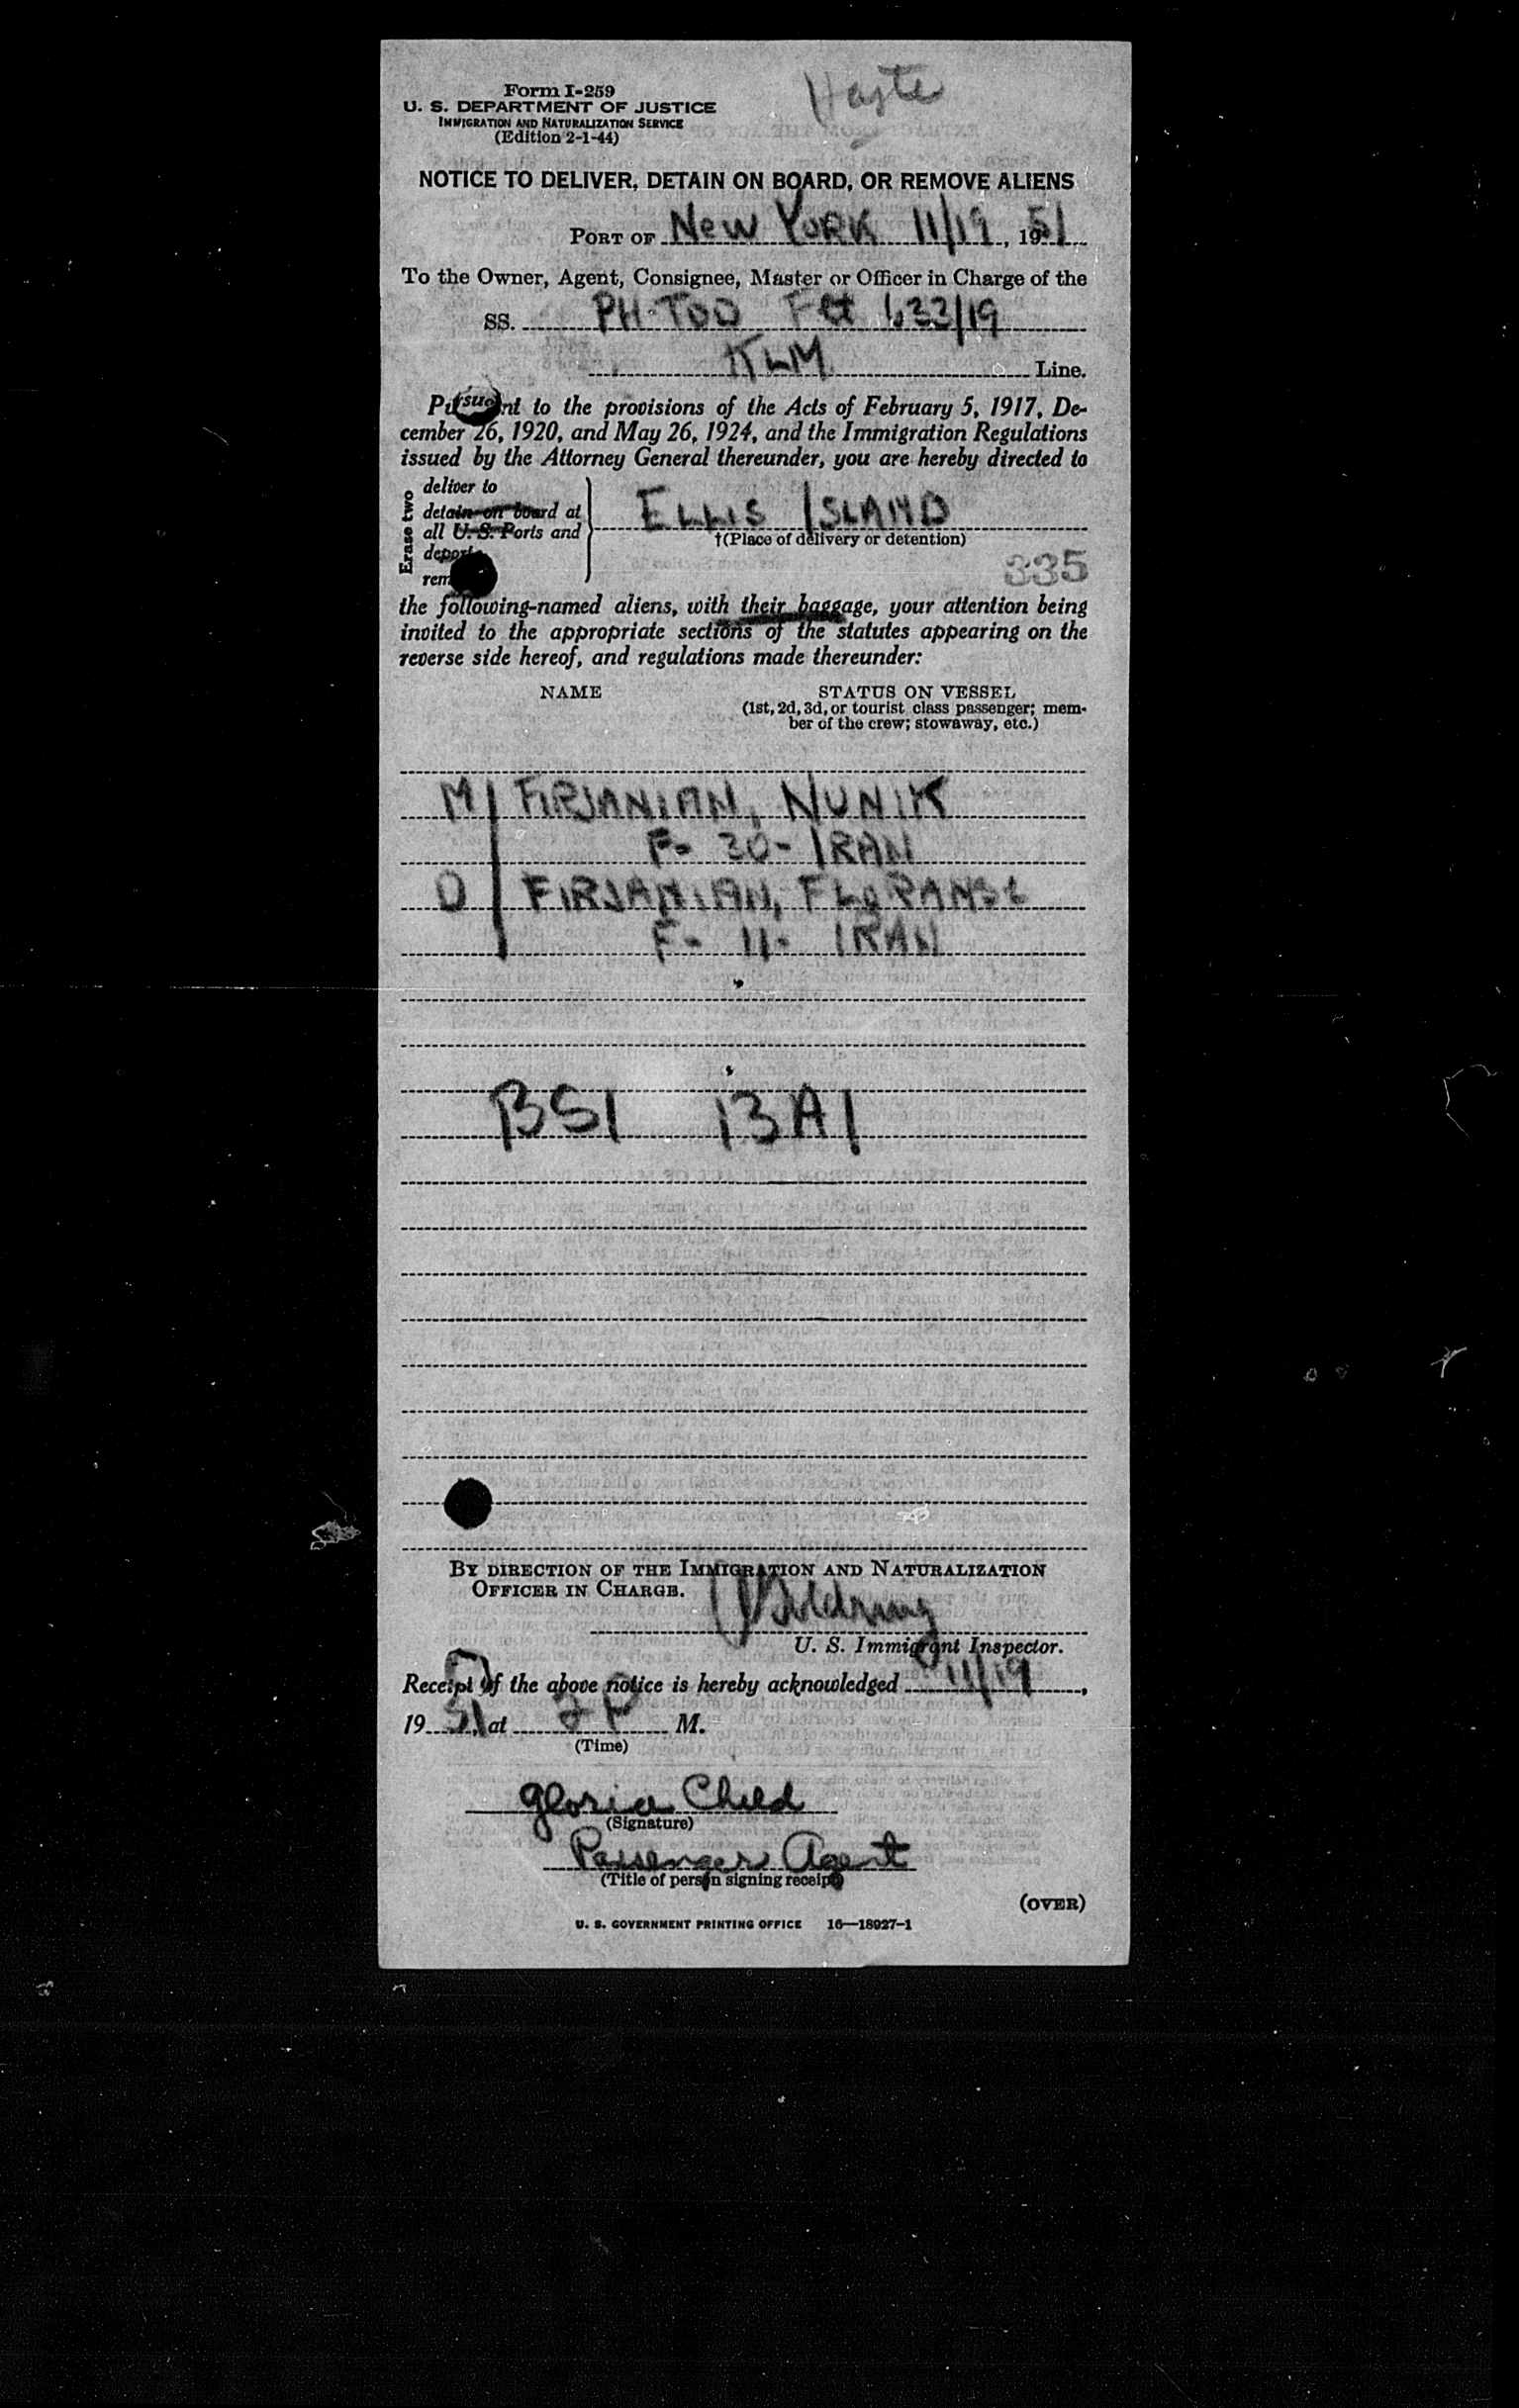 Form I-259
U. S. DEPARTMENT OF JUSTICE
IMMIGRATION AND NATURALIZATION SERVICE
(Edition 2-1-44)
NOTICE TO DELIVER, DETAIN ON BOARD, OR REMOVE ALIENS
PORT OF New York 11/19, 1951
To the Owner, Agent, Consignee, Master or Officer in Charge of the
SS. PH-TDD Flt 633/19
KLM Line.
Pursuant to the provisions of the Acts of February 5, 1917, De-
cember 26, 1920, and May 26, 1924, and the Immigration Regulations
issued by the Attorney General thereunder, you are hereby directed to
Erase two
deliver to
detain on board at
all U. S. Ports and
deport
rem
ELLIS ISLAND
†(Place of delivery or detention)
335
the following-named aliens, with their baggage, your attention being
invited to the appropriate sections of the statutes appearing on the
reverse side hereof, and regulations made thereunder:
NAME STATUS ON VESSEL
(1st, 2d, 3d, or tourist class passenger; mem-
ber of the crew; stowaway, etc.)
M FIRJANIAN, NUNIK
F- 30- IRAN
D FIRJANIAN, FLORANSE
F- 11- IRAN
BSI 13A1
BY DIRECTION OF THE IMMIGRATION AND NATURALIZATION
OFFICER IN CHARGE.
U. S. Immigrant Inspector.
Receipt of the above notice is hereby acknowledged 11/19,
1951, at 2 P M.
(Time)
Gloria Child
(Signature)
Passenger Agent
(Title of person signing receipt)
(OVER)
U. S. GOVERNMENT PRINTING OFFICE 16—18927-1